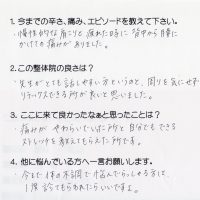 1. 今までの辛さ、痛み、エピソードを教えて下さい。
・慢性的な肩こりと疲れた時に背中から腰に
かけての痛みがありました。
2. この整体院の良さは？
・先生がとても話しやすい方というのと、周りを気にせず
リラックスできる所が良いと思いました。
3. ここに来て良かったなぁと思ったことは？
・痛みがやわらいでいった所と自分でもできる
ストレッチを教えてもらえた所です。
4. 他に悩んでいる方へ一言お願いします。
・今まで体の不調で悩んでいらっしゃる方は、
1度診てもらわれたらいいですよ。